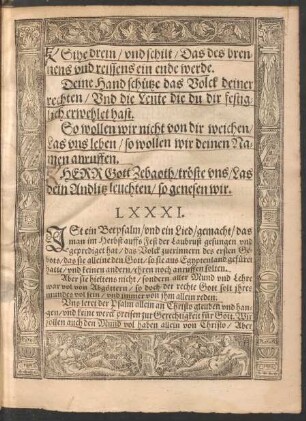 Sihe drein / vnd schilt / Das des bren-
nens vnd reissens ein ende werde.
Deine Hand schütze das Volck deiner
rechten / Vnd die Leute die du dir festig-
lich erwehlet hast.
So wollen wir nicht von dir weichen /
Las vns leben / so wollen wir deinen Na-
men anruffen.
HERR Gott Zebaoth / tröste vns / Las
dein Andlitz leuchten / so genesen wir.
LXXXI.
IST ein Betpsalm / vnd ein Lied / gemacht / das
man im Herbst auffs Fest der Laubrust gesungen vnd
geprediget hat / das Volck zuerinnern des ersten Ge-
bots / das sie allein den Gott / so sie aus Egypten land gefüret
hatte / vnd keinen andern / ehren noch anruffen solten.
Aber sie hieltens nicht / sondern aller Mund vnd Lehre
war vol von Abgöttern / so doch der rechte Gott solt jhres
mundes vol sein / vnd jmmer von jhm allein reden.
Vns leret der Psalm allein an Christo gleuben vnd han-
gen / vnd keine werck preisen zur Gerechtigkeit für Gott. Wir
sollen auch den Mund vol haben allein von Christo / Aber